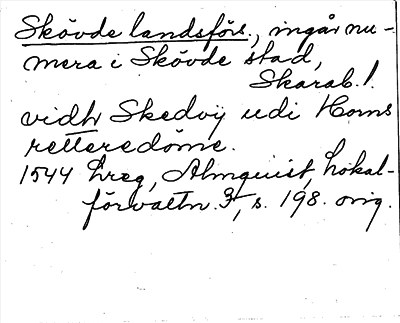 Skövde landsförs., ingår nu-
mera i Skövde stad,
Skarab. l.
vidh Skedvij udi Horns
retteredöme.
1544 hreg, Almquist, Lokal-
förvaltn. 3, s. 198. orig.